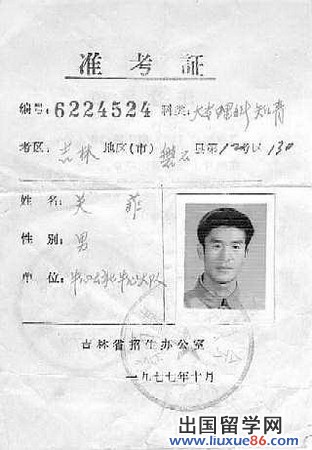 准考证
编号:6224524 科类:大本理科 知青
考区:吉林 地区(市) 磐石 县第12考区 130
姓 名: 关 菲
性 别: 男
单 位:
吉林省招生办公室
一九七七年十月
出国留学网
www.liuxue86.com